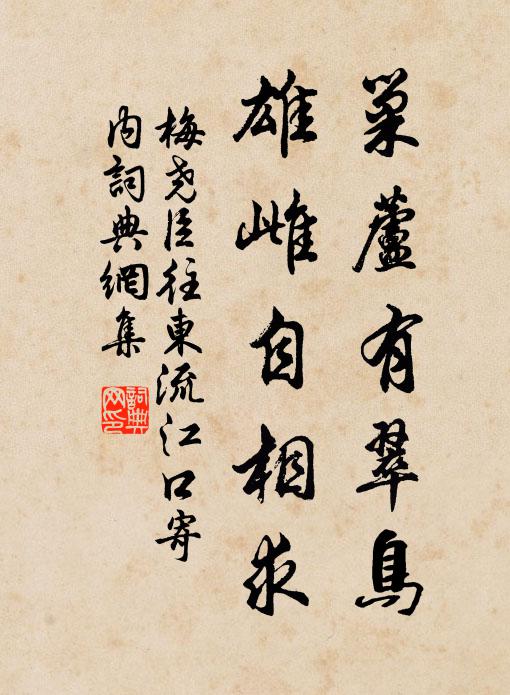 巢蘆有翠鳥
雄雌自相求
梅堯臣往東流江口寄
內詞典網集
詞典
网印